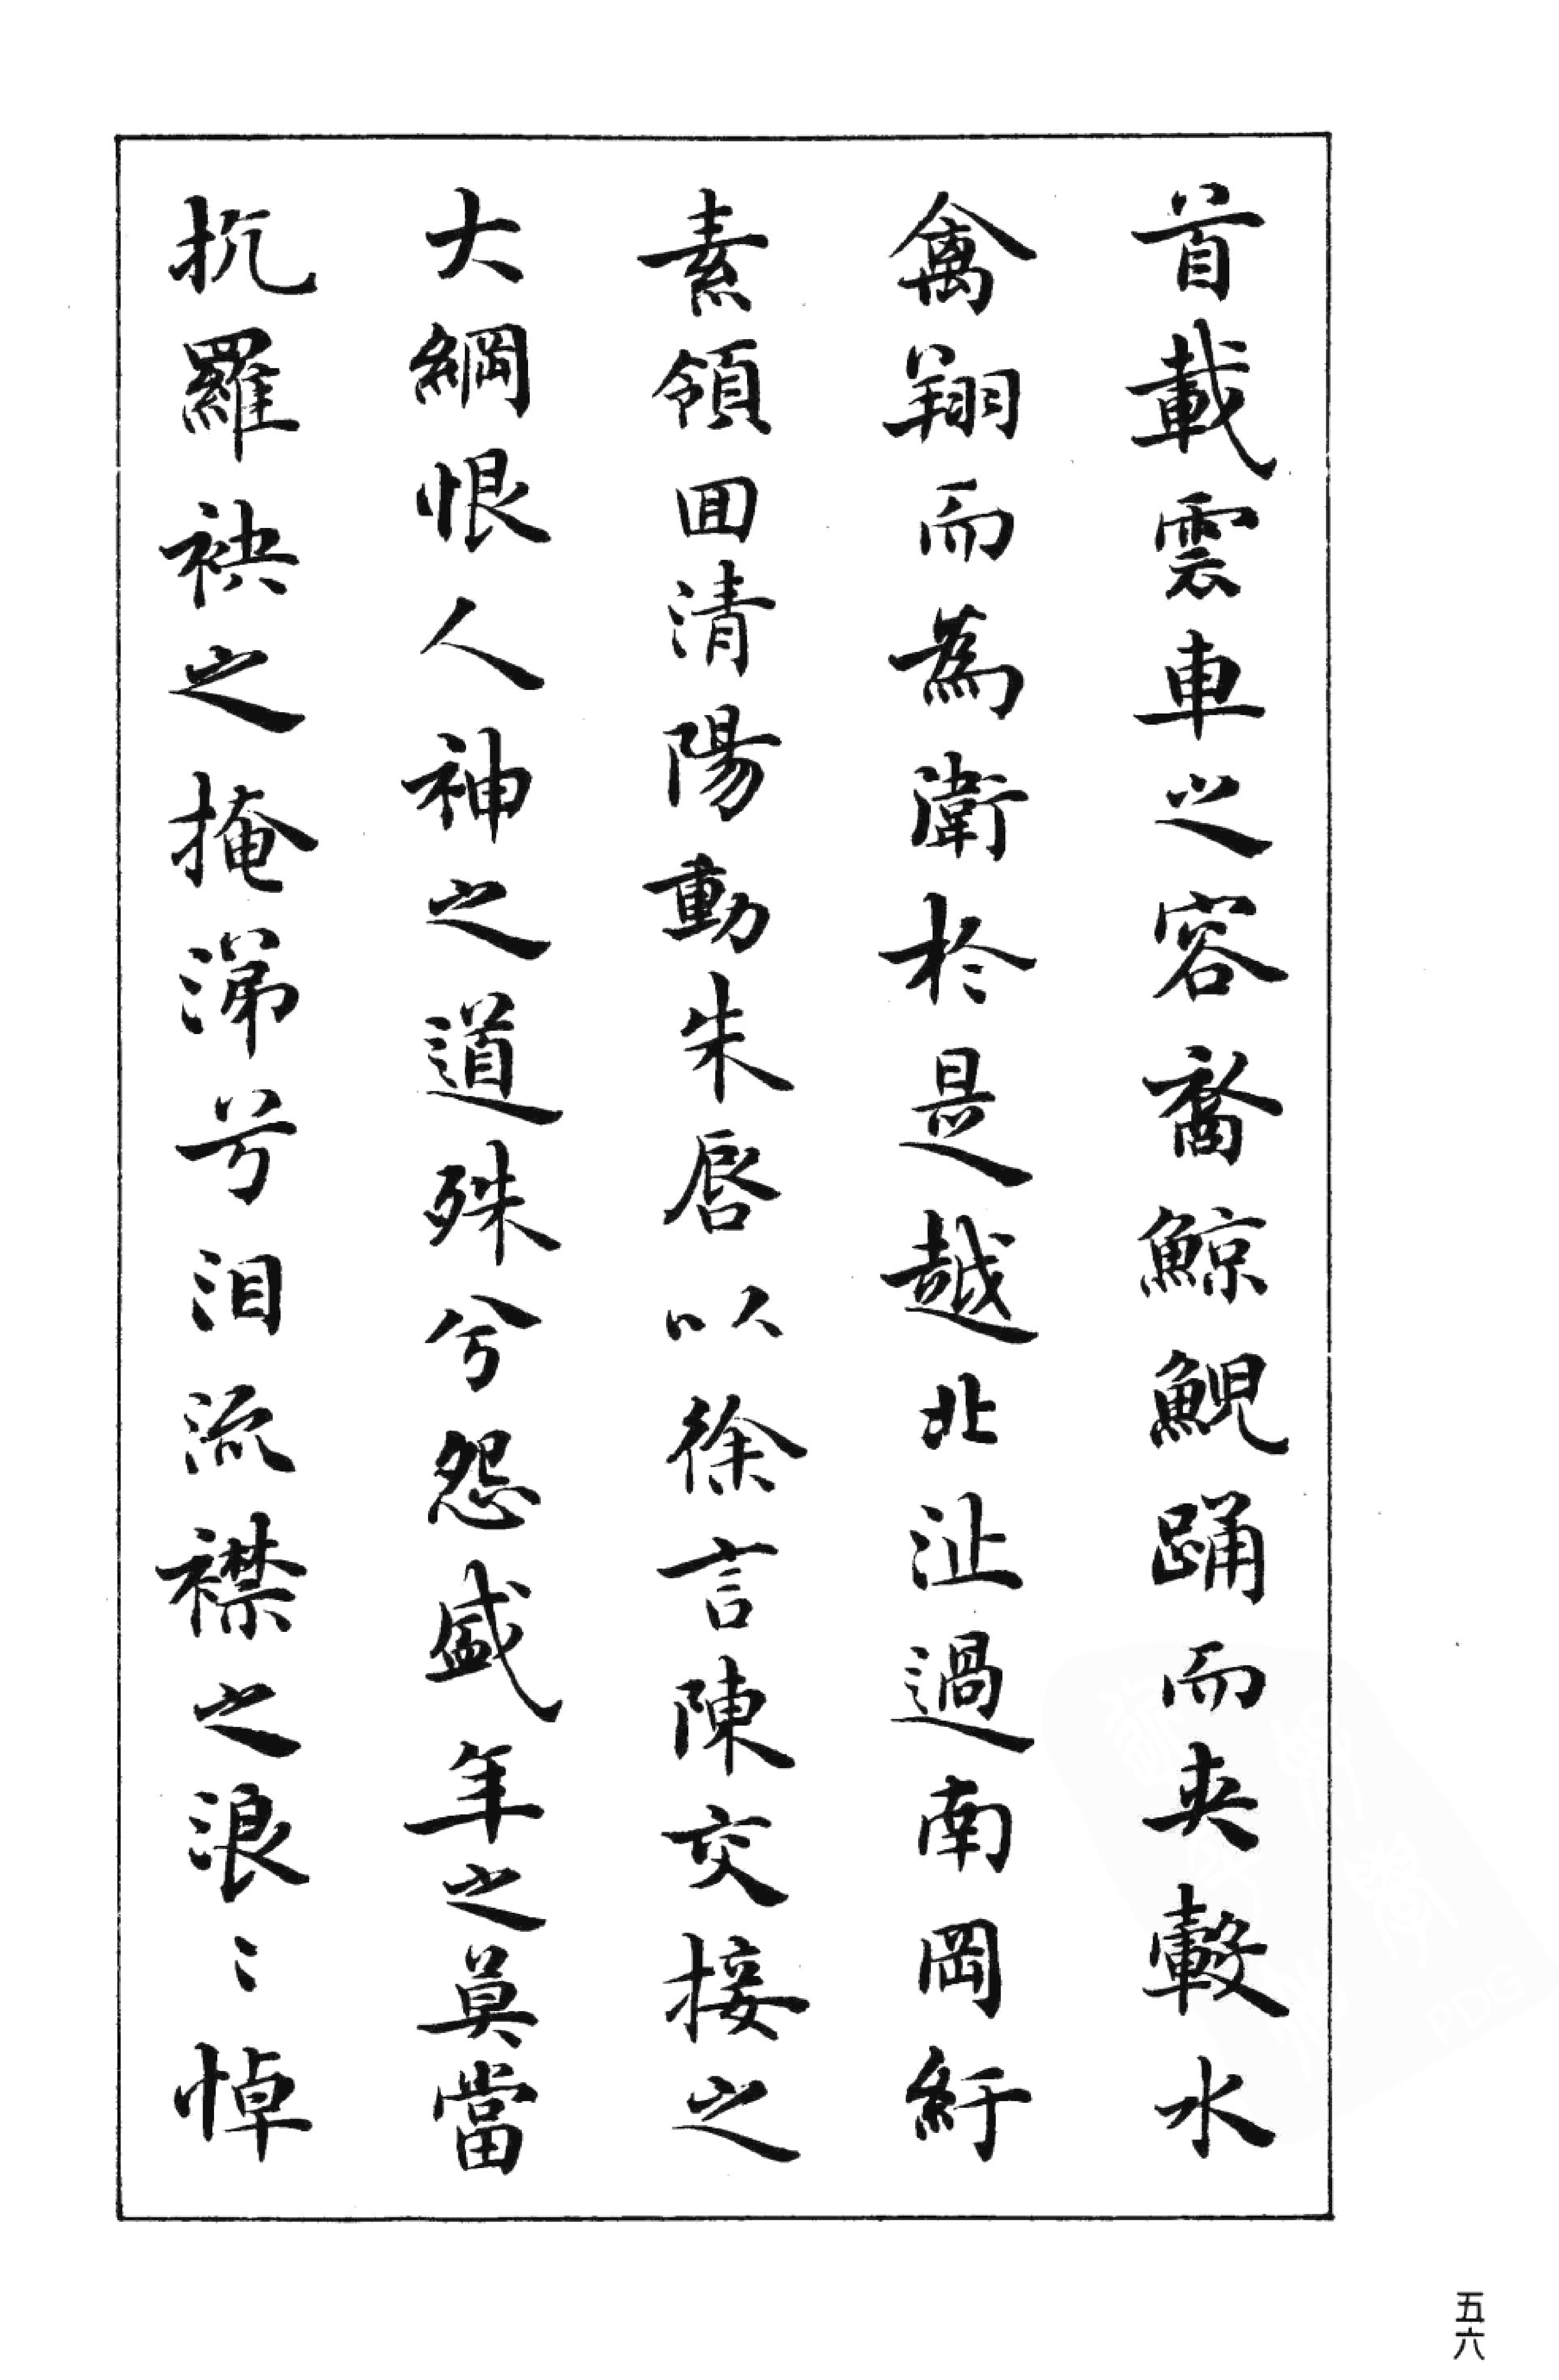 首載雲車之容裔鯨鯢踊而夾轂水
禽翔而為衛於是越北沚過南岡紆
素領囬清陽動朱唇以徐言陳交接之
大綱恨人神之道殊兮怨盛年之莫當
抗羅袂之掩涕兮泪流襟之浪〻悼
五六